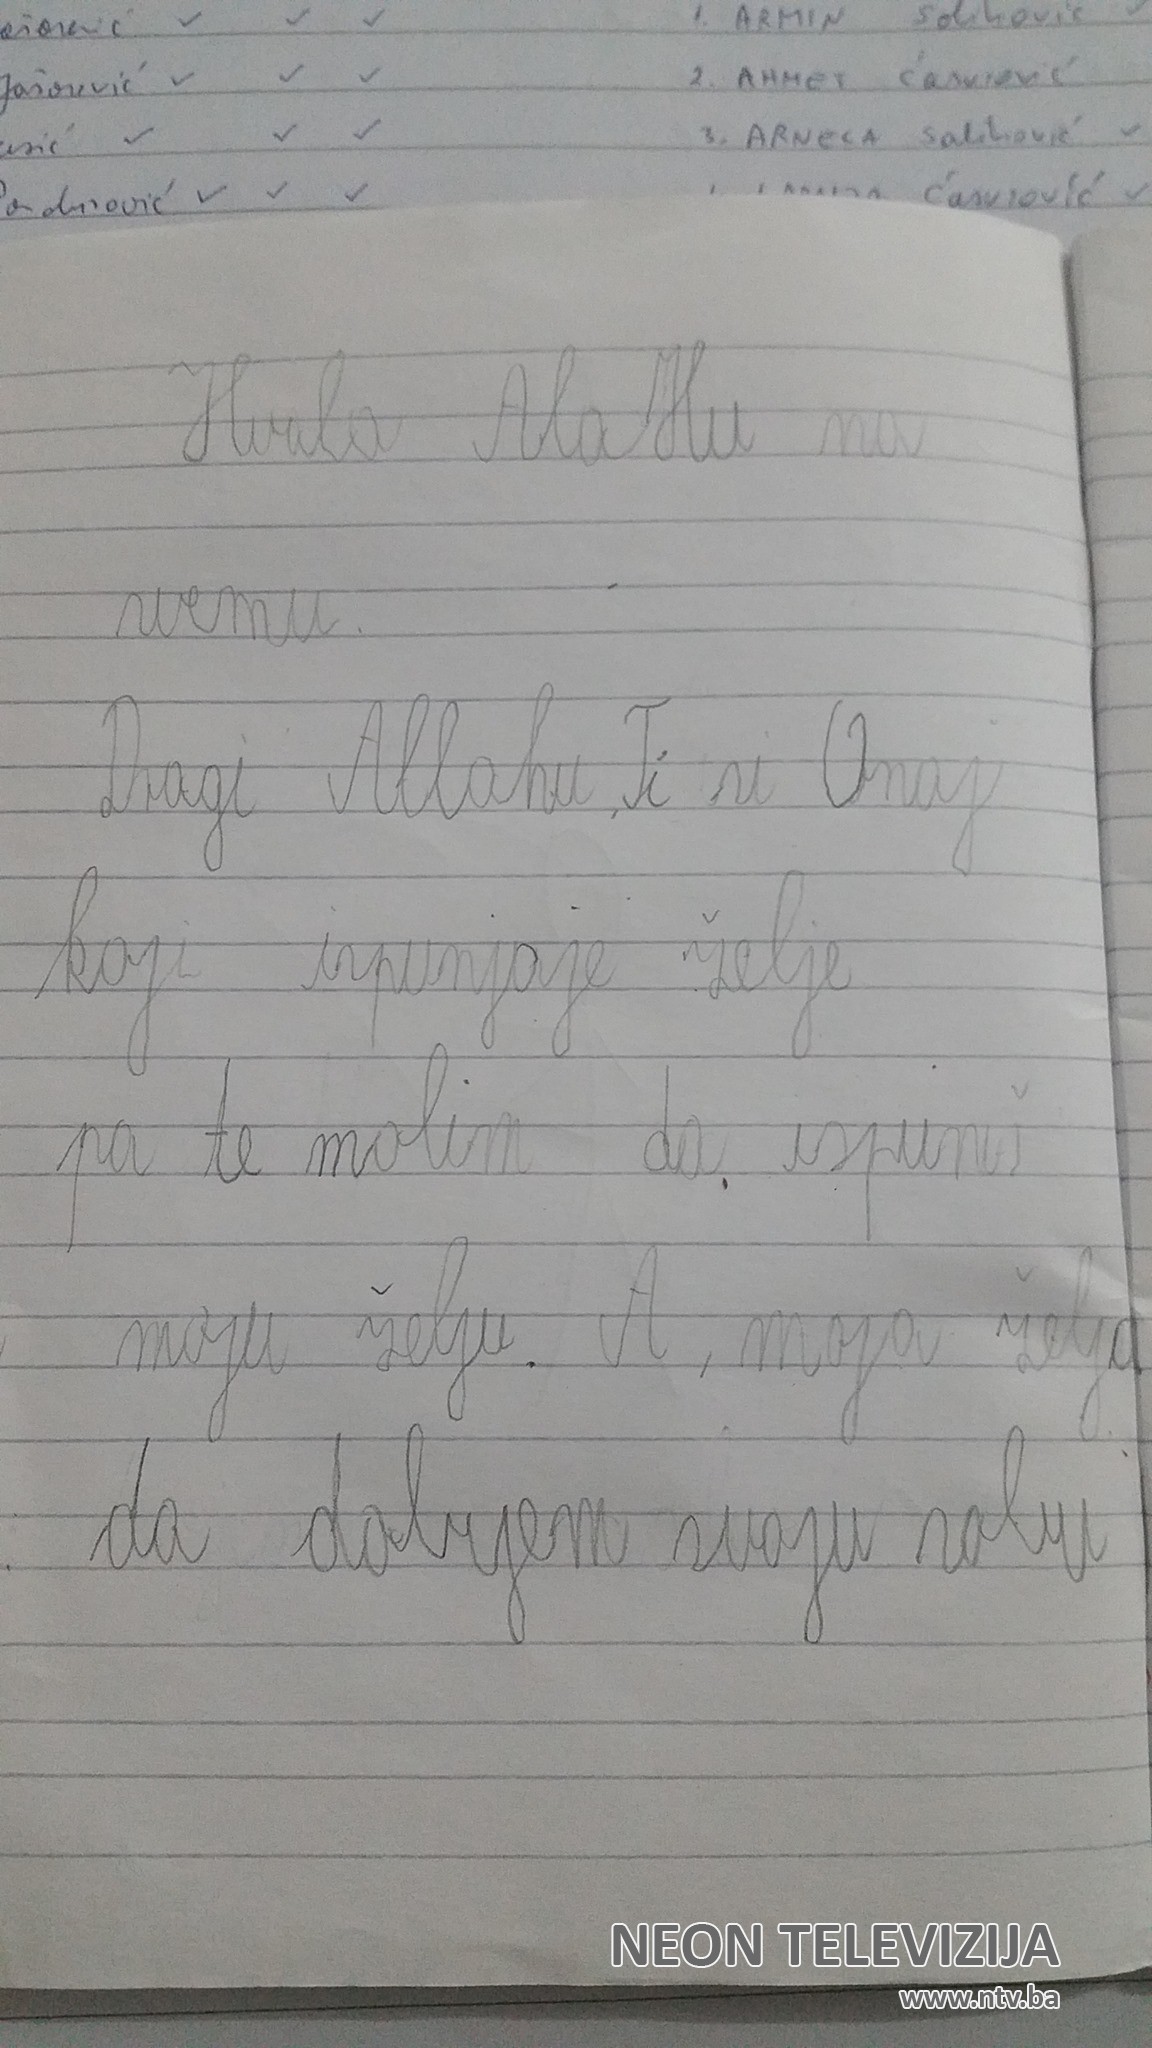 Jašarević ✓ ✓ ✓ 1. ARMIN Salihović ✓
Jašarević ✓ ✓ ✓ 2. AHMET Ćasurović
✓ ✓ ✓ 3. ARNELA Salihović ✓
✓ ✓ ✓ Ćasurović ✓
Hvala AlaHu na
svemu.
Dragi Allahu, Ti si Onaj
koji ispunjaje želje
pa te molim da ispuniš
moju želju. A, moja želja
da dobijem svoju sobu
NEON TELEVIZIJA
www.ntv.ba